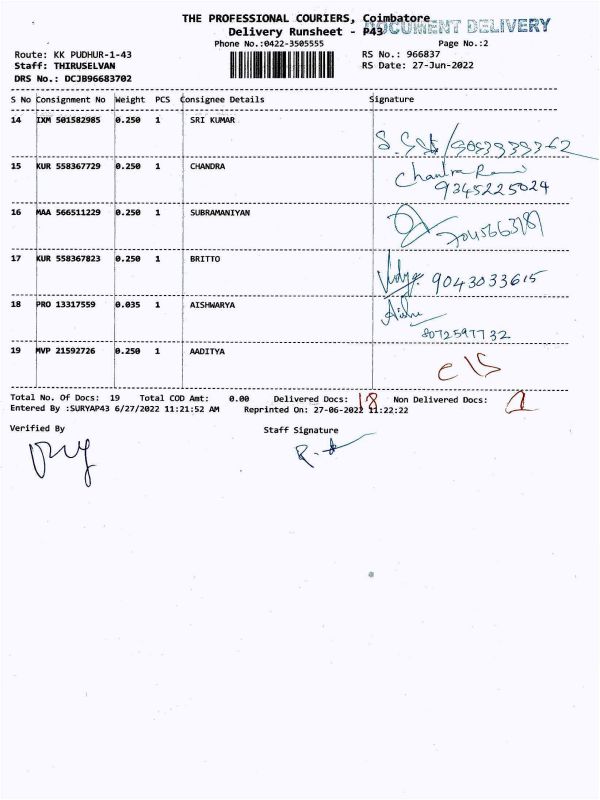 THE PROFESSIONAL COURIERS, Coimbatore
DOCUMENT DELIVERY
Delivery Runsheet - P43
Phone No.:0422-3505555
Page No.:2
Route: KK PUDHUR-1-43
RS No.: 966837
Staff: THIRUSELVAN
RS Date: 27-Jun-2022
DRS No.: DCJB96683702
S No Consignment No Weight PCS Consignee Details Signature
14 IXM 501582985 0.250 1 SRI KUMAR
15 KUR 558367729 0.250 1 CHANDRA
Chandra
9345225024
16 MAA 566511229 0.250 1 SUBRAMANIYAN
17 KUR 558367823 0.250 1 BRITTO
9043033615
18 PRO 13317559 0.035 1 AISHWARYA
Aishu
8072597732
19 MVP 21592726 0.250 1 AADITYA
Total No. Of Docs: 19 Total COD Amt: 0.00 Delivered Docs: 18 Non Delivered Docs: 1
Entered By :SURYAP43 6/27/2022 11:21:52 AM Reprinted On: 27-06-2022 11:22:22
Verified By Staff Signature